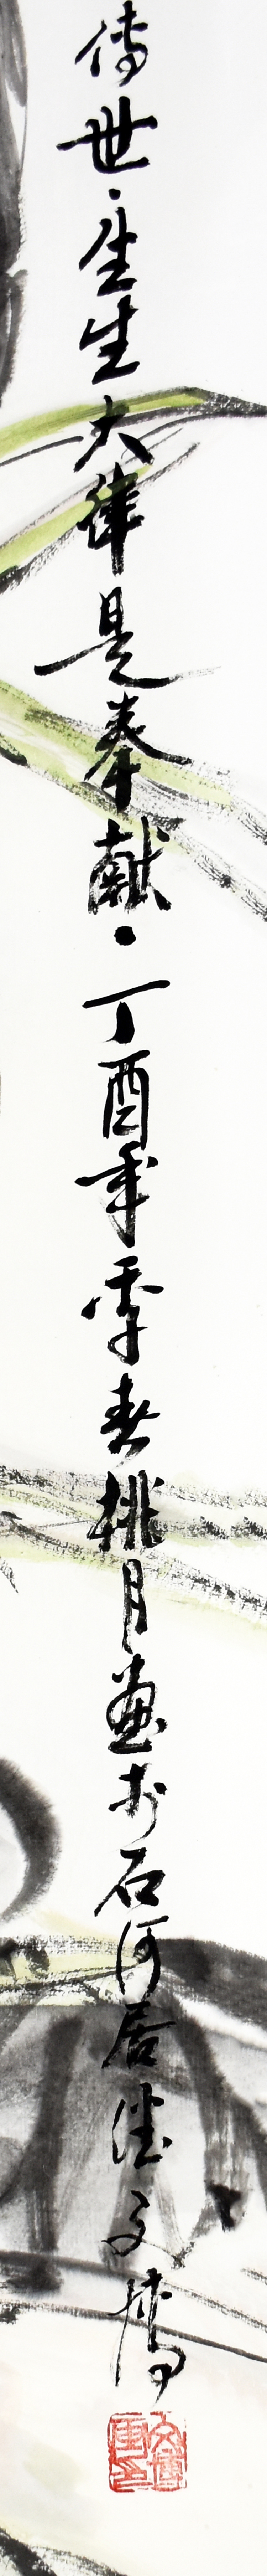 傳世·生生大律是奉献·丁酉年季春桃月畫於石河居文博